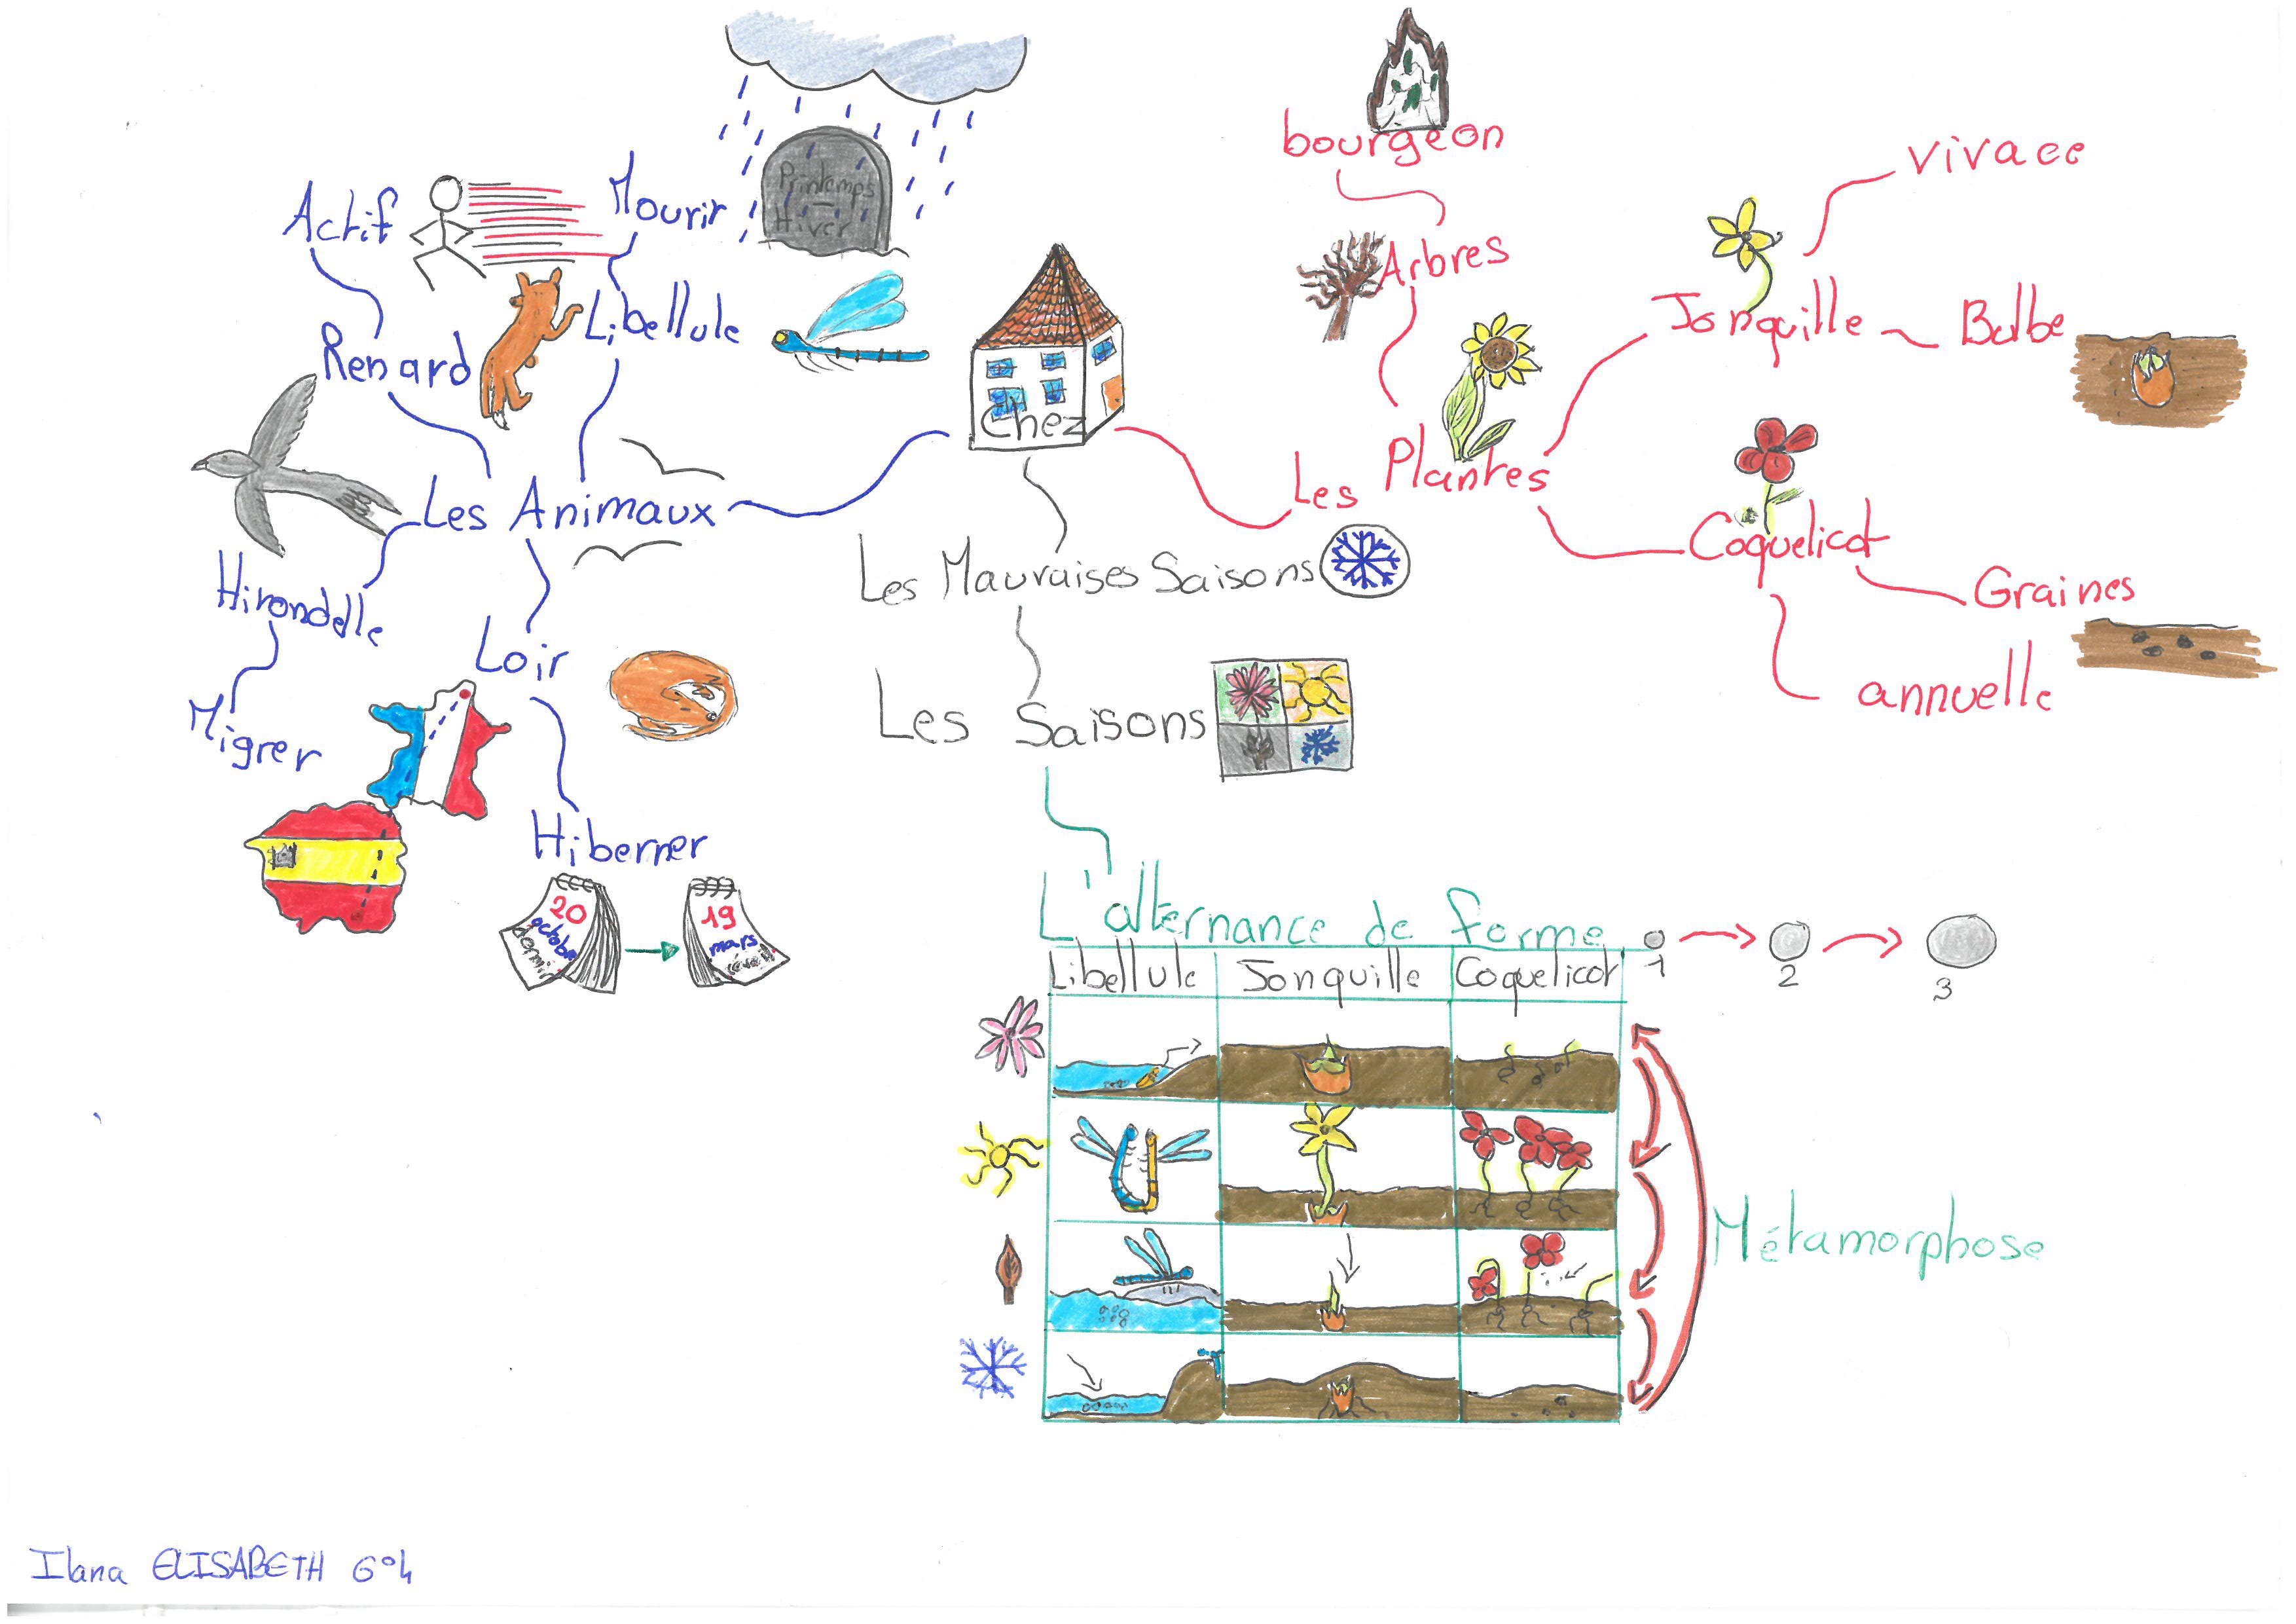 Actif
Mourir
Printemps
Hiver
Renard
Libellule
Les Animaux
Hirondelle
Migrer
Loir
Hiberner
20
octobre
dormir
19
mars
réveil
Chez
Les Mauvaises Saisons
Les Saisons
bourgeon
Arbres
Les Plantes
vivace
Jonquille
Bulbe
Coquelicot
Graines
annuelle
L'alternance de forme
1
2
3
Libellule Jonquille Coquelicot
Métamorphose
Ilana ELISABETH 6°4